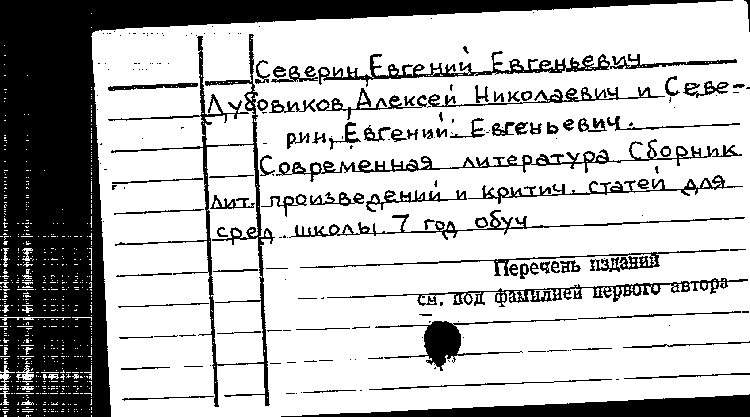 Северин, Евгений Евгеньевич
Дубовиков, Алексей Николаевич и Севе-
рин, Евгений Евгеньевич.
Современная литература. Сборник
лит. произведений и критич. статей для
сред. школы. 7 год обуч
Перечень изданий
см. под фамилией первого автора